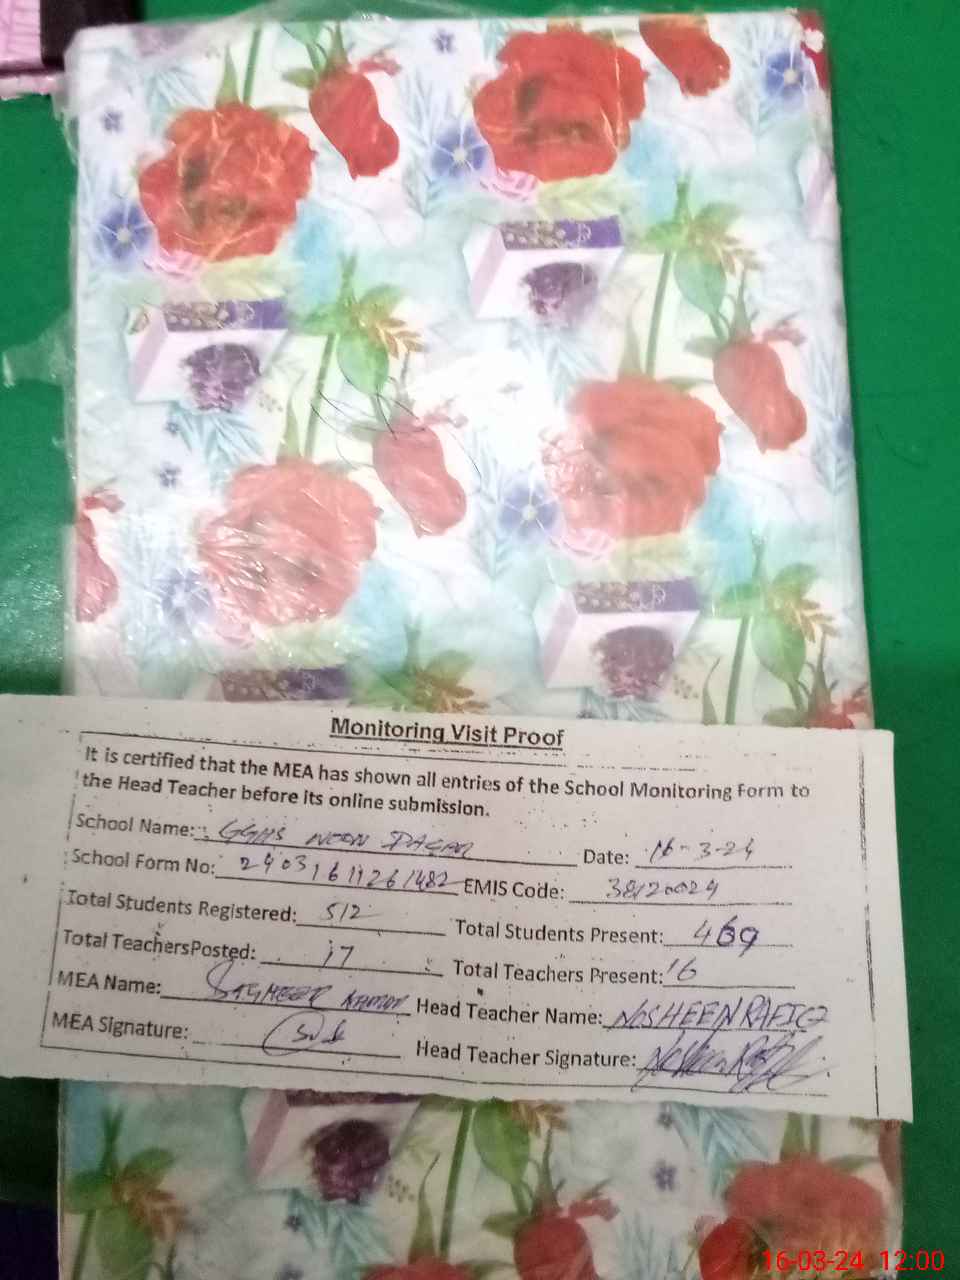 Monitoring Visit Proof
It is certified that the MEA has shown all entries of the School Monitoring Form to
the Head Teacher before its online submission.
School Name: GGHS NOON Date: 16-3-24
School Form No: 24031611261482 EMIS Code: 38120024
Total Students Registered: 512 Total Students Present: 469
Total TeachersPosted: 17 Total Teachers Present: 16
MEA Name: Head Teacher Name: NOSHEEN RAFIQ
MEA Signature: Head Teacher Signature:
16-03-24 12:00